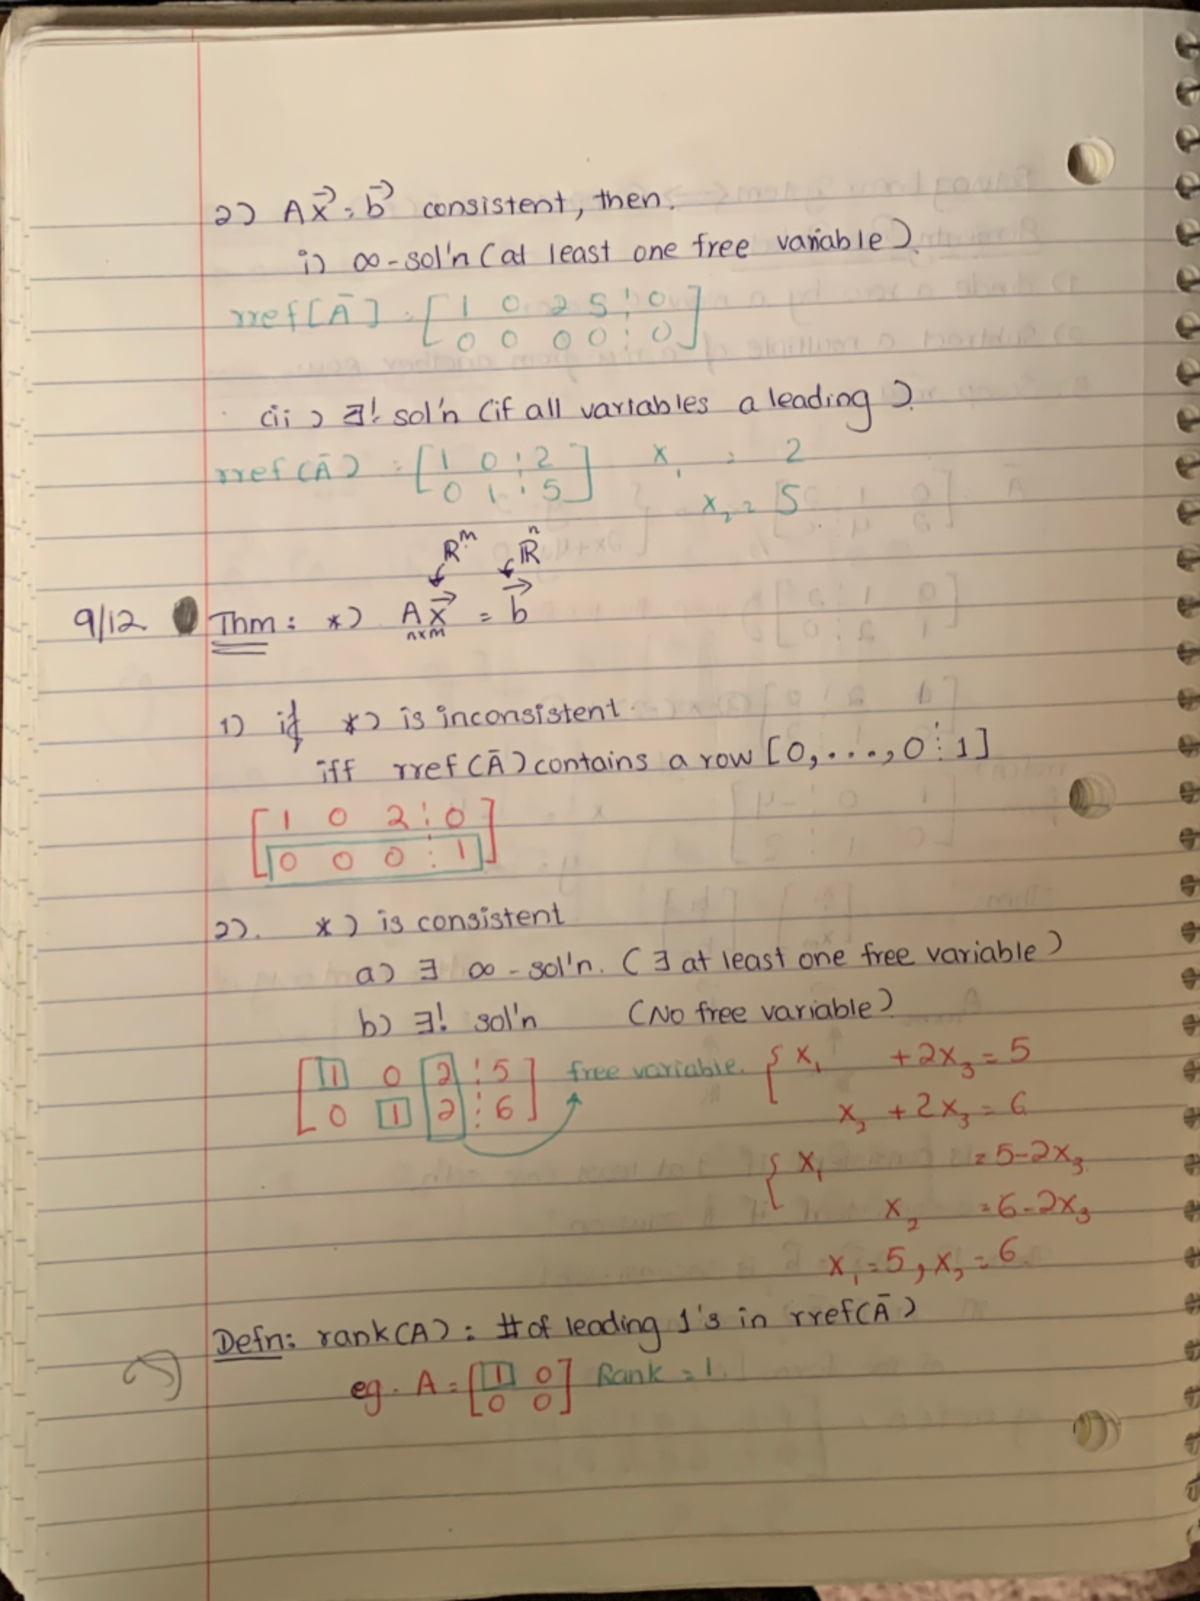 2) Ax⃗ = b⃗ consistent, then.
i) ∞-sol'n (at least one free variable).
rref[Ā] = [1 0 2 5 ⋮ 0]
[0 0 0 0 ⋮ 0]
(ii) ∃! sol'n (if all variables a leading).
rref(Ā) = [1 0 ⋮ 2] x₁ = 2
[0 1 ⋮ 5] x₂ = 5
ℝᵐ ℝⁿ
9/12 Thm: *) Ax⃗ = b⃗
n×m
1) if *) is inconsistent
iff rref(Ā) contains a row [0,...,0 ⋮ 1]
[1 0 2 ⋮ 0]
[0 0 0 ⋮ 1]
2). *) is consistent
a) ∃ ∞-sol'n. (∃ at least one free variable)
b) ∃! sol'n (No free variable)
[1 0 2 ⋮ 5] free variable. { x₁ +2x₃ = 5
[0 1 2 ⋮ 6] x₂ +2x₃ = 6
{ x₁ = 5-2x₃
x₂ = 6-2x₃
x₁ = 5, x₂ = 6
Defn: rank(A) = # of leading 1's in rref(Ā)
eg. A = [1 0] Rank = 1
[0 0]